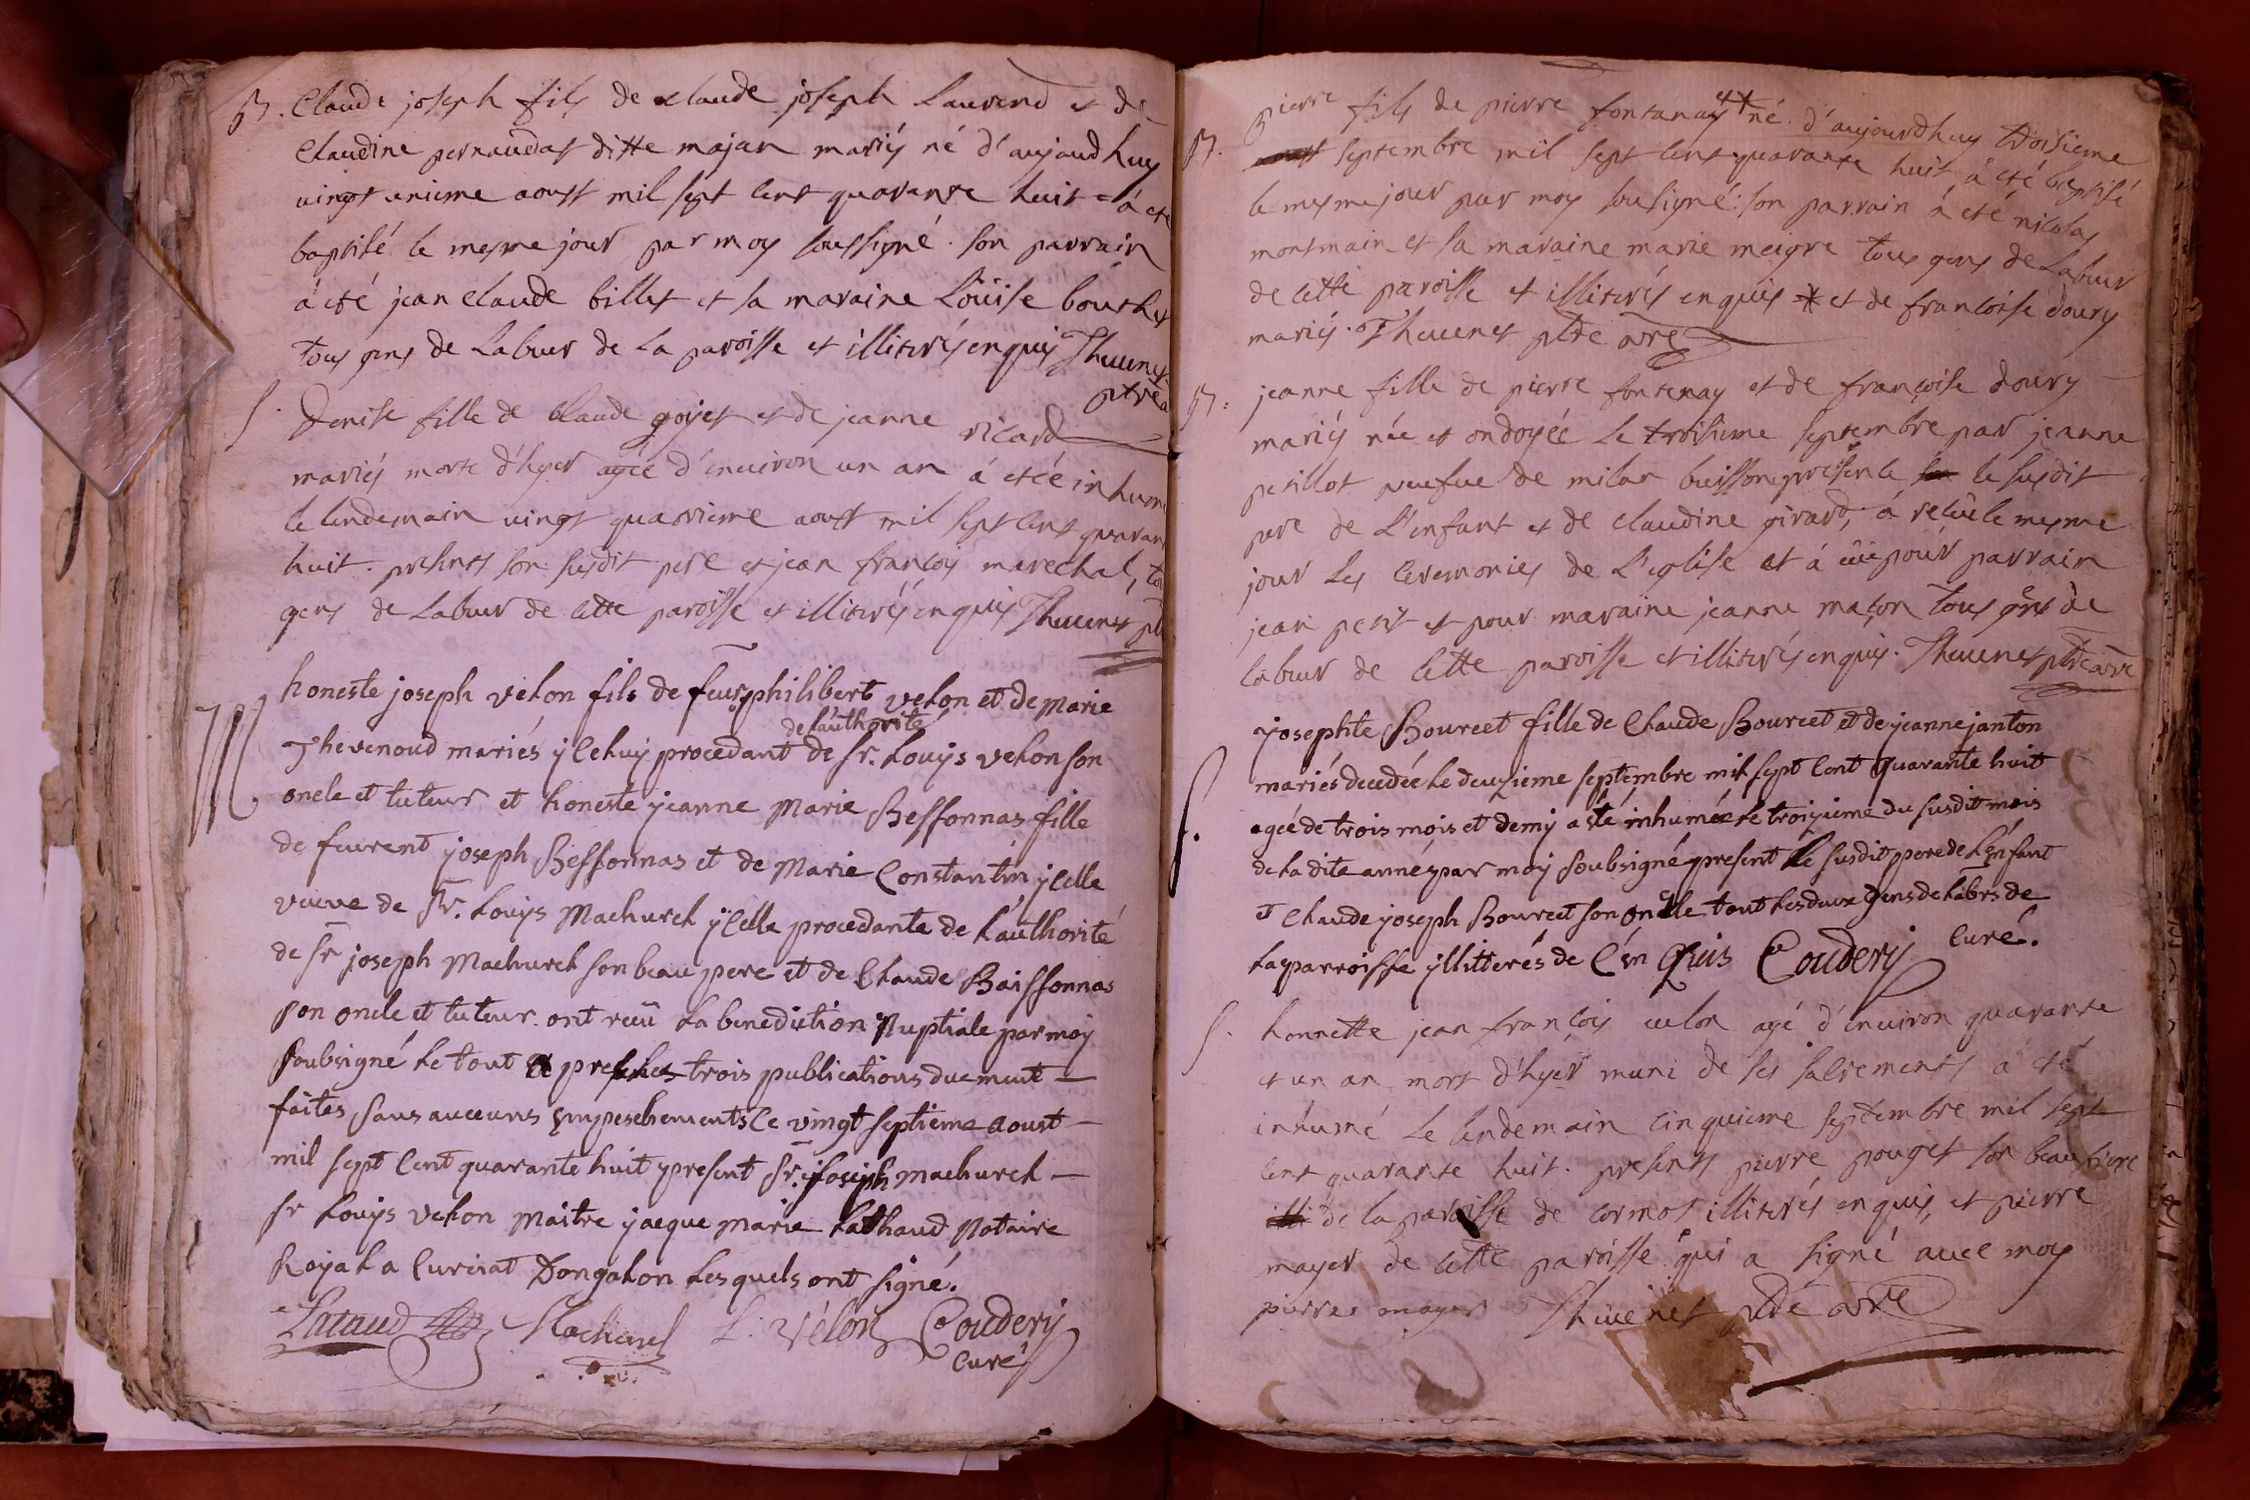 B. Claude joseph fils de claude joseph Laurend et de
Claudine pernaudat ditte majan mariés né d'aujaudhuy
vingt unieme aoust mil sept cent quarante huit a été
baptisé le mesme jour par moy soussigné. son parrain
a été jean claude billet et la maraine Loüise bouchet
tous gens de Labeur de la paroisse et illiterés enquis Thevenet
ptre
S. Denise fille de Claude goyet et de jeanne ricard
mariés morte d'hyer agee d'environ un an a etée inhumé
le lendemain vingt quatrieme aoust mil sept cent quaran
huit. presents son susdit pere et jean françois marechal, to
gens de Labeur de cette paroisse et illiterés enquis Thevenet pt
M. honeste joseph velon fils de feu philibert velon et de Marie
de l'authorité
Thevenoud mariés yceluy procedant de Sr. Louys velon son
oncle et tuteur et honeste jeanne Marie Bessonnas fille
de feurent joseph Bessonnas et de Marie Constantin ycelle
veuve de Sr. Louys Machurel ycelle procedante de L'authorité
de Sr joseph Machurel son beau pere et de Claude Baissonnas
son oncle et tuteur ont reçu La benediction Nuptiale par moy
soubsigné le tout apres les trois publications duement
faites sans aucuns empeschements ce vingt septieme aoust
mil sept cent quarante huit present Sr. joseph machurel
Sr Louys velon Maitre jacque marie Lathaud Notaire
Royal a Curciat Dongalon Lesquels ont signé.
Lataud Machurel L. Vélon Coudery
curé
B. pierre fils de pierre fontanay et * né d'aujourdhuy troisieme
septembre mil sept cent quarante huit a été baptisé
le mesme jour par moy sousigné: son parrain a été nicolas
montmain et sa maraine marie meigre tous gens de Labeur
de cette paroisse et illiterés enquis * et de francoise doury
mariés. Thevenet ptre
B. jeanne fille de pierre fontenay et de françoise doury
mariés née et ondoyée le troisieme septembre par jeanne
petillot veufue de milan buisson presence le susdit
pere de L'enfant et de claudine girard, a reçu le mesme
jour les ceremonies de L'eglise et a eu pour parrain
jean petit et pour maraine jeanne maçon tous gens de
labeur de cette paroisse et illiterés enquis. Thevenet ptre
S. josephte Bourcet fille de Claude Bourcet et de jeanne janton
mariés decedée le deuzieme septembre mil sept cent quarante huit
agée de trois mois et demy a été inhumée le troizieme du susdit mois
de la dite année par moy soubsigné present Le susdit pere de L'enfant
et Claude joseph Bourcet son oncle tout les deux gens de Labrs de
La parroisse yllitterés de ce enquis Coudery curé.
S. honnette jean françois culon agé d'environ quarante
et un an mort d'hyer muni de ses sacrements a été
inhumé le lendemain cinquieme septembre mil sept
cent quarante huit. presents pierre pouget son beau frere
de la paroisse de cormos illiterés enquis, et pierre
mayer de cette paroisse qui a signé avec moy
pierre mayer Thevenet ptre